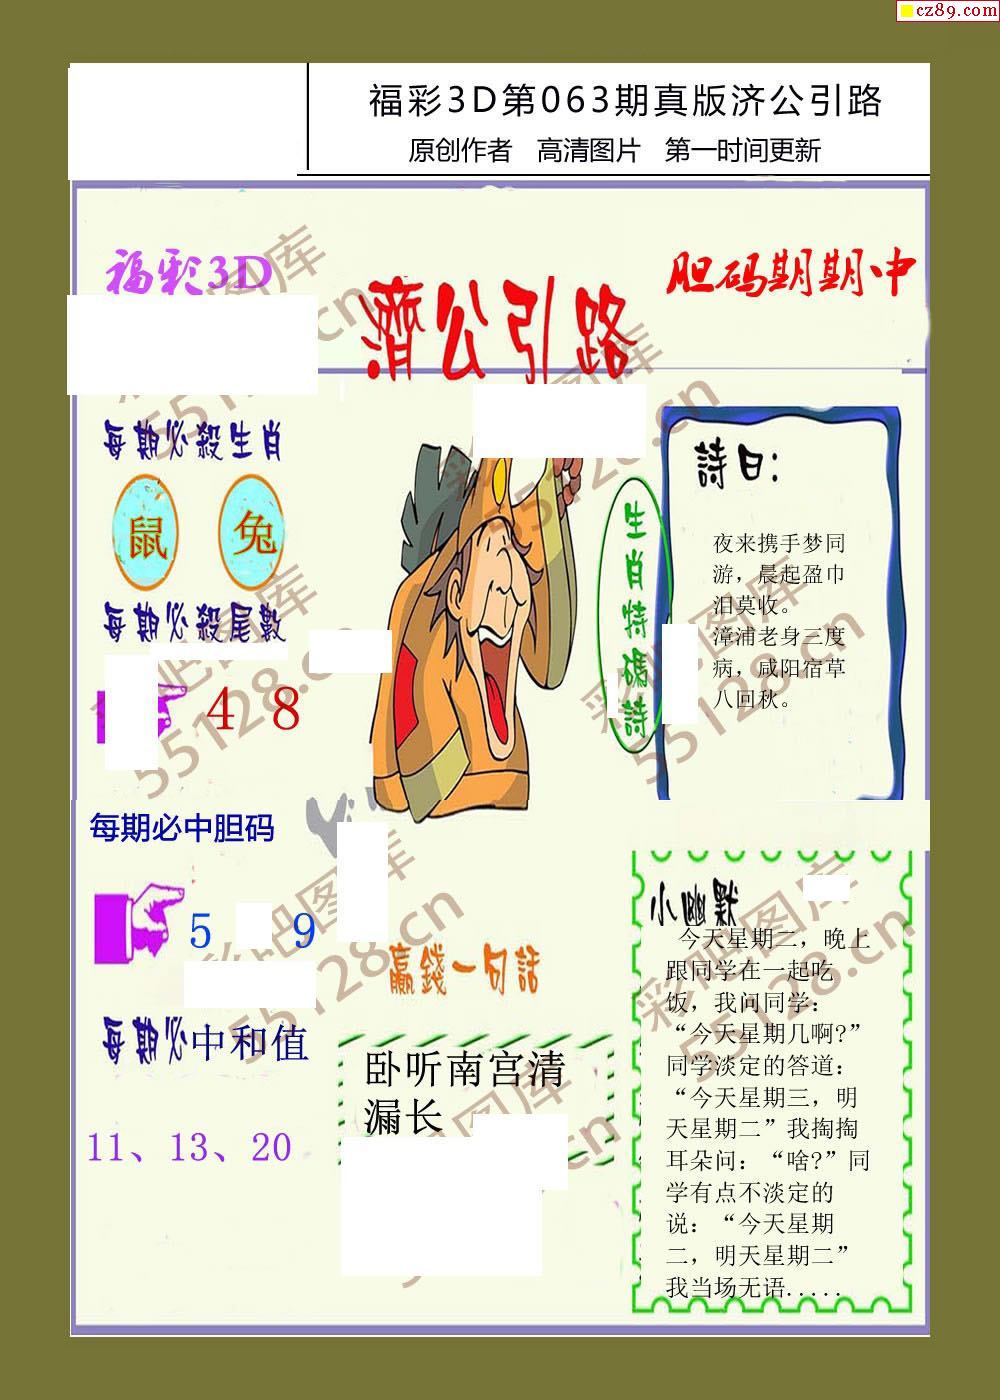 cz89.com
福彩3D第063期真版济公引路
原创作者 高清图片 第一时间更新
福彩3D
濟公引路
胆码期期中
每期必殺生肖
鼠 兔
每期必殺尾數
4 8
生肖特碼詩
詩曰：
夜来携手梦同
游，晨起盈巾
泪莫收。
漳浦老身三度
病，咸阳宿草
八回秋。
每期必中胆码
5 9
每期必中和值
11、13、20
贏錢一句話
卧听南宫清
漏长
小幽默
今天星期二，晚上
跟同学在一起吃
饭，我问同学：
“今天星期几啊?”
同学淡定的答道：
“今天星期三，明
天星期二”我掏掏
耳朵问：“啥?”同
学有点不淡定的
说：“今天星期
二，明天星期二”
我当场无语.....
彩吧图库
55128.cn